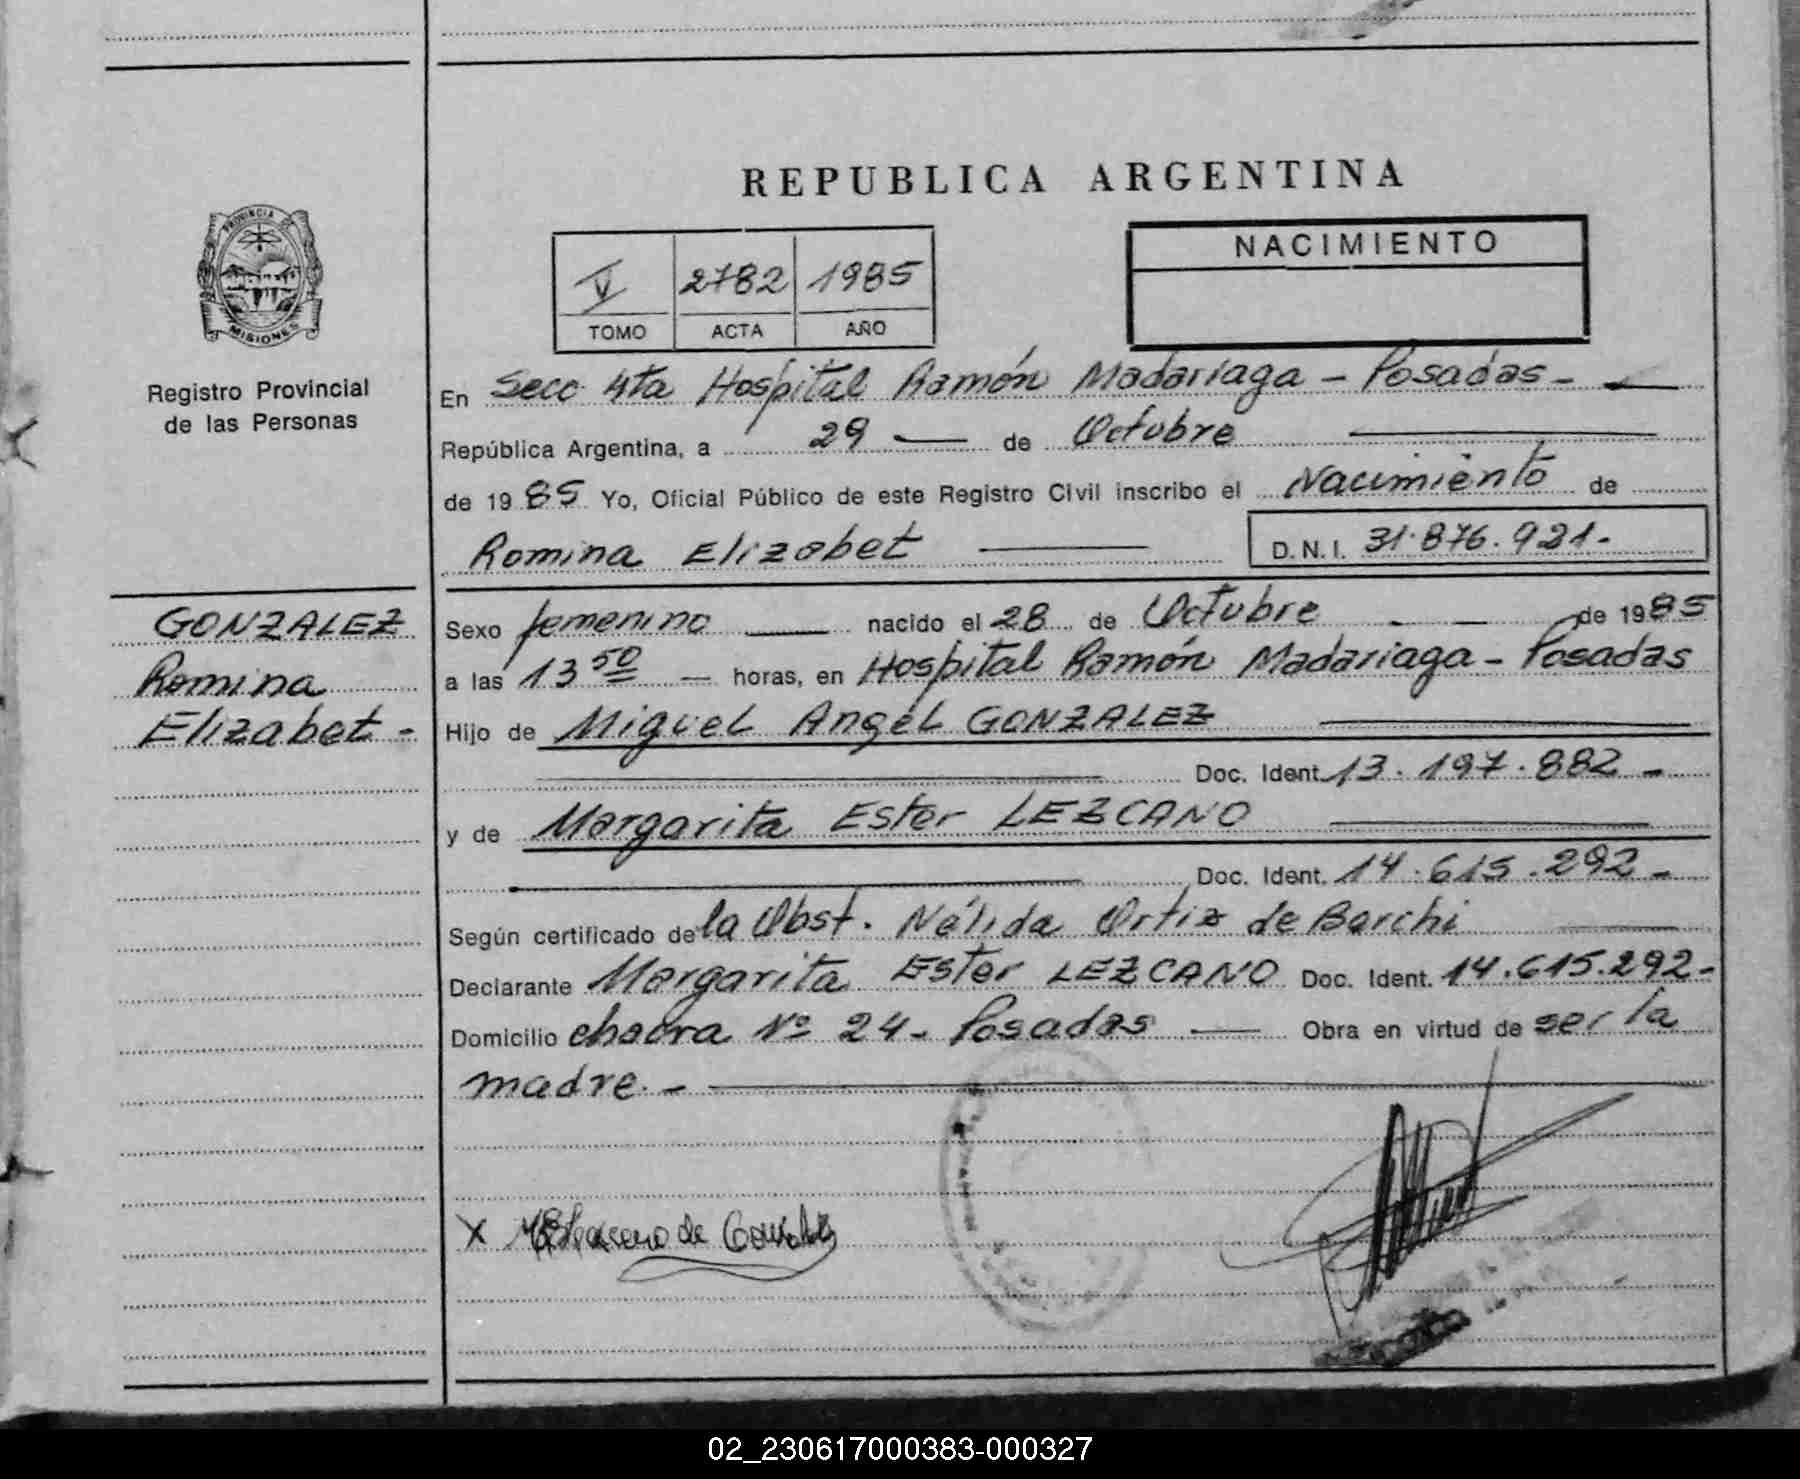 REPUBLICA ARGENTINA
PROVINCIA DE
MISIONES
Registro Provincial
de las Personas
V 2782 1985
TOMO ACTA AÑO
NACIMIENTO
En Secc 4ta Hospital Ramón Madariaga - Posadas -
República Argentina, a 29 de Octubre
de 1985 Yo, Oficial Público de este Registro Civil inscribo el Nacimiento de
Romina Elizabet D.N.I. 31.876.921.-
GONZALEZ
Romina
Elizabet -
Sexo femenino nacido el 28 de Octubre de 1985
a las 13 50 horas, en Hospital Ramón Madariaga - Posadas
Hijo de Miguel Angel GONZALEZ
Doc. Ident. 13.197.882 -
y de Margarita Ester LEZCANO
Doc. Ident. 14.615.292 -
Según certificado de la Obst. Nélida Ortiz de Barchi
Declarante Margarita Ester LEZCANO Doc. Ident. 14.615.292 -
Domicilio chacra Nº 24 - Posadas Obra en virtud de ser la
madre. -
X de Gonzalez
02_230617000383-000327